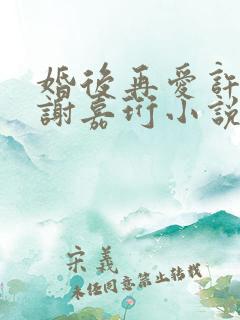 婚後再愛許
謝嘉珩小說
宋義
未经同意禁止转载